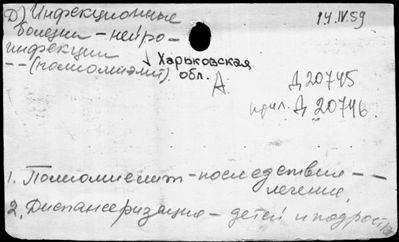 Д) Инфекционные
болезни - нейро-
инфекции
-- (полиомиэлит)
Харьковская
обл.
14.IV.59
А.
Д 20745
прил. Д 20746.
1. Полиомиелит - последствия --
лечение.
2. Диспансеризация - детей и подростк